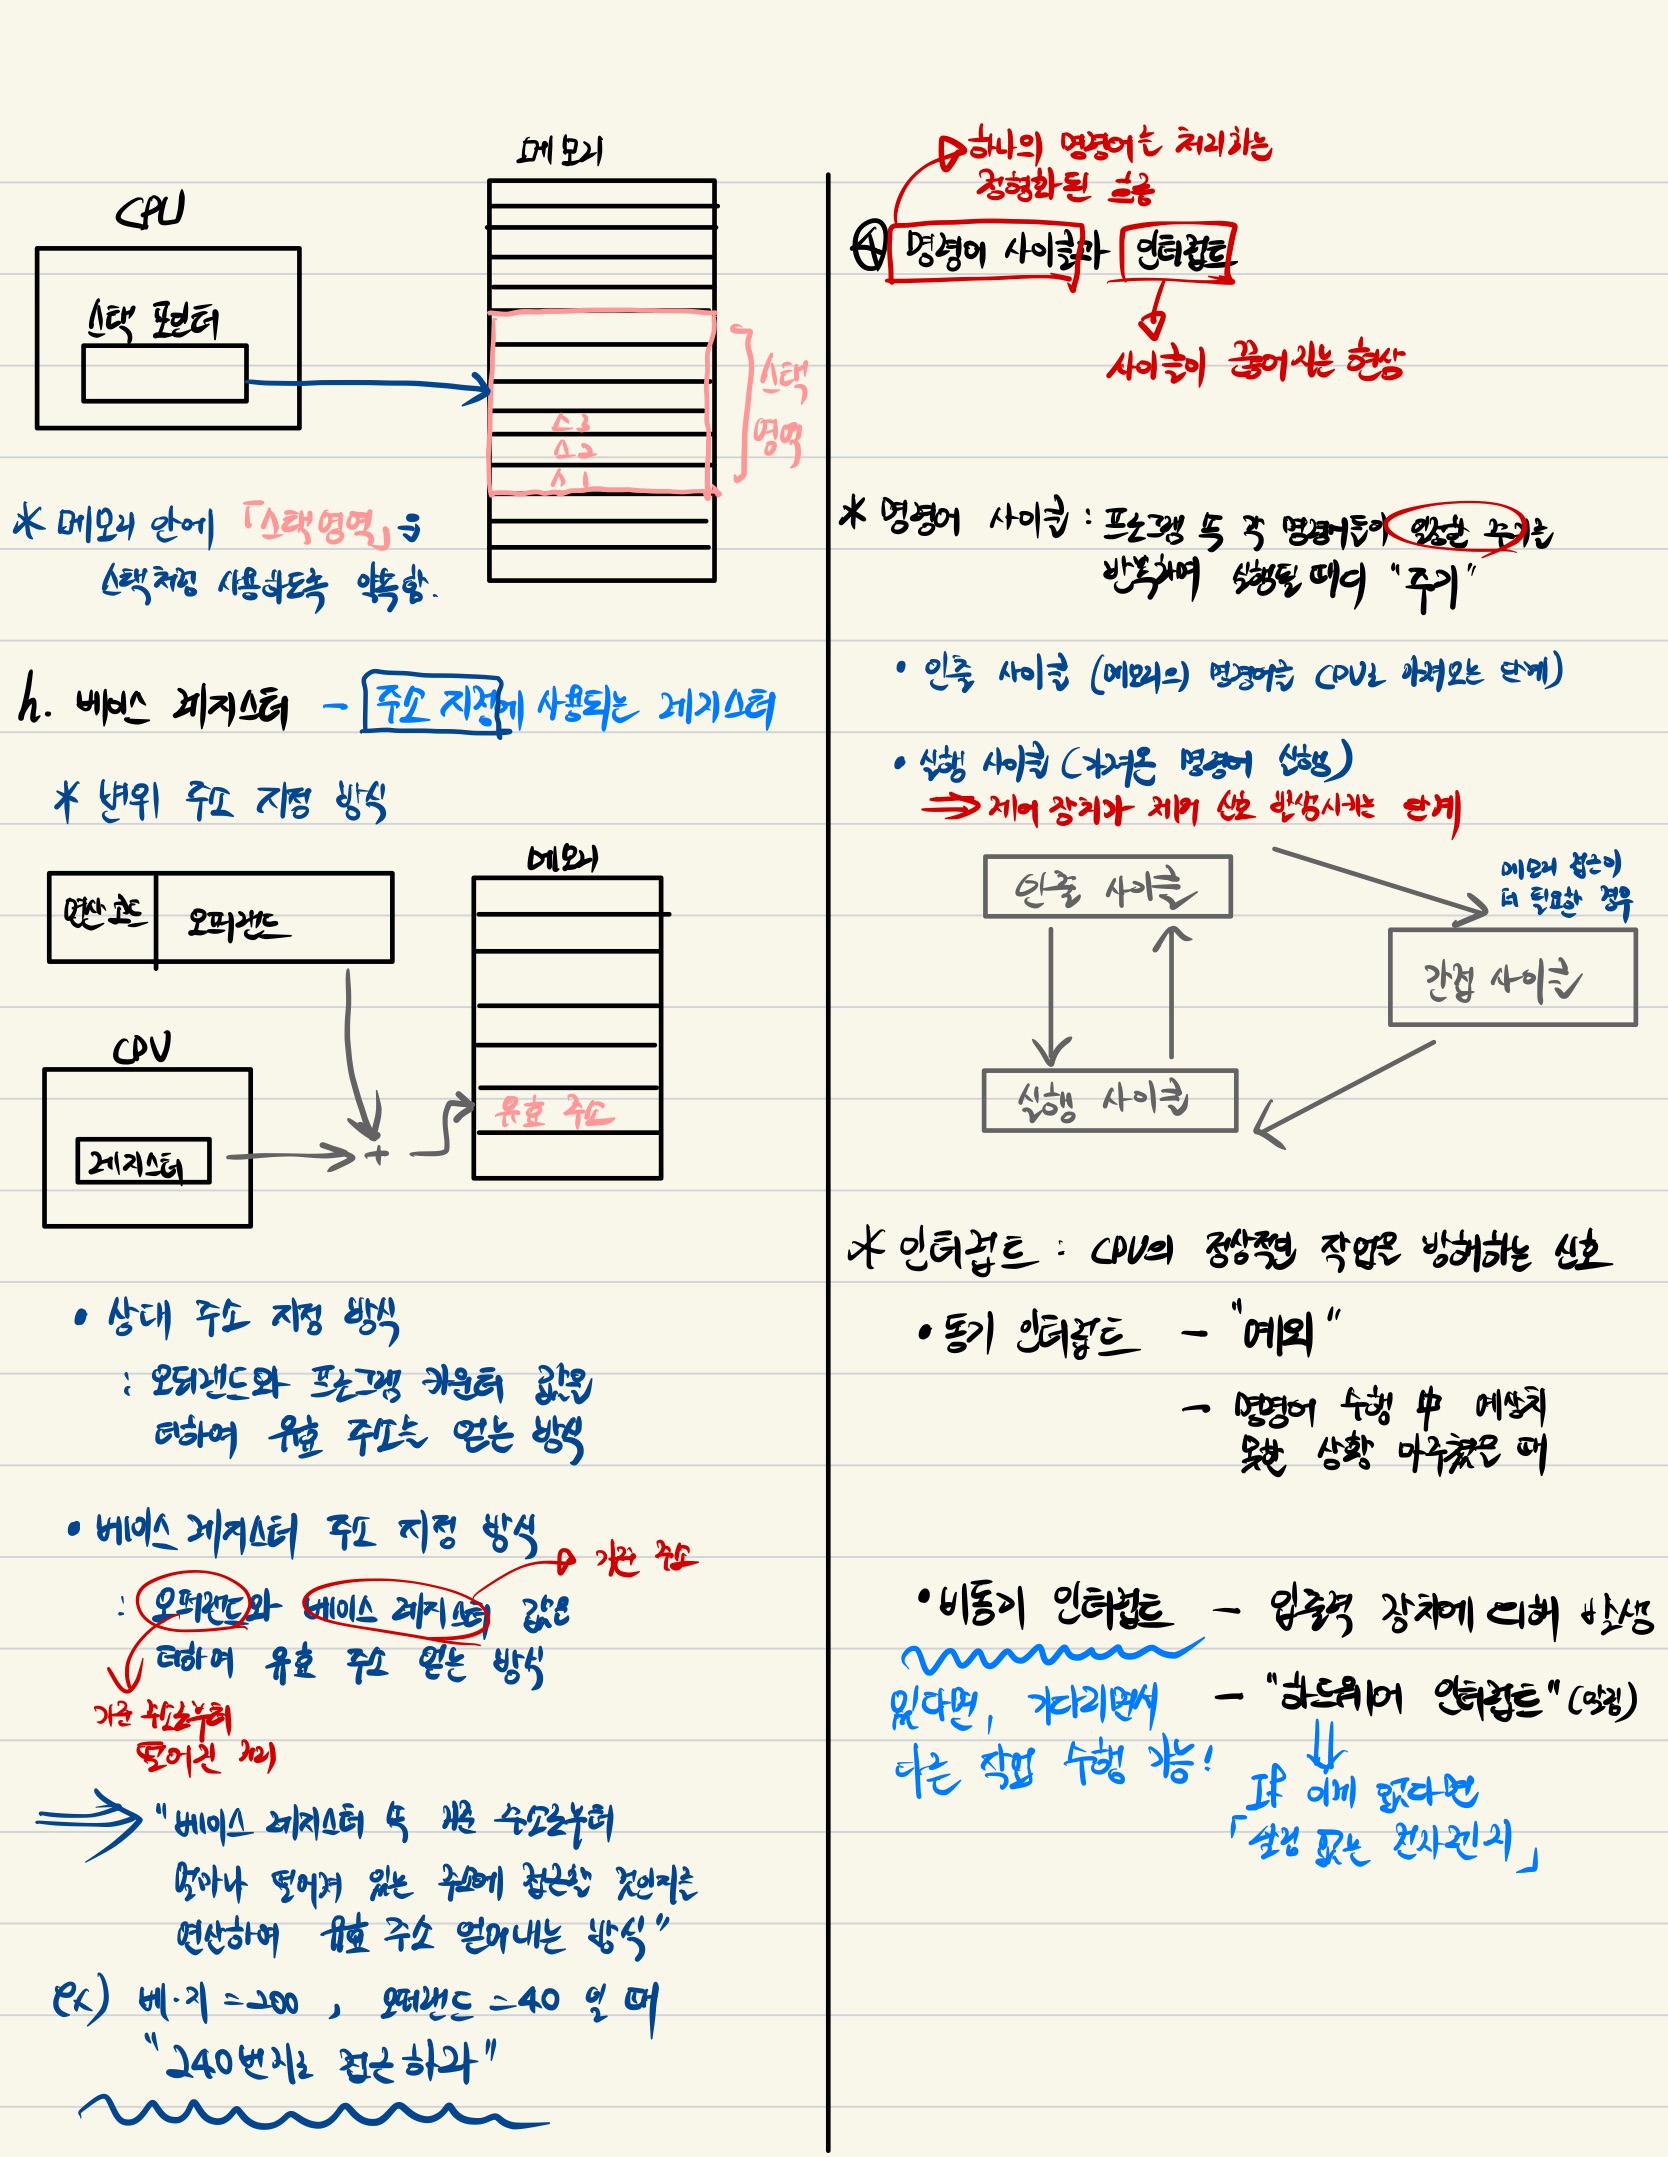 메모리
CPU
스택 포인터
스택
영역
스3
스2
스1
* 메모리 안에 「스택영역」을
스택처럼 사용하도록 약속함.
h. 베이스 레지스터 - 주소 지정에 사용되는 레지스터
* 변위 주소 지정 방식
메모리
연산 코드 오퍼랜드
CPU
레지스터
+
유효 주소
• 상대 주소 지정 방식
: 오퍼랜드와 프로그램 카운터 값을
더하여 유효 주소를 얻는 방식
• 베이스 레지스터 주소 지정 방식
기준 주소
: 오퍼랜드와 베이스 레지스터 값을
더하여 유효 주소 얻는 방식
기준 주소로부터
떨어진 거리
⇒ "베이스 레지스터 속 기준 주소로부터
얼마나 떨어져 있는 주소에 접근할 것인지를
연산하여 유효 주소 얻어내는 방식"
ex) 베.지 = 200, 오퍼랜드 = 40 일 때
"240번지로 접근하라"
하나의 명령어는 처리하는
정형화된 흐름
④ 명령어 사이클과 인터럽트
사이클이 끊어지는 현상
* 명령어 사이클 : 프로그램 속 각 명령어들이 일정한 주기를
반복하며 실행될 때의 "주기"
• 인출 사이클 (메모리의 명령어를 CPU로 가져오는 단계)
• 실행 사이클 (가져온 명령어 실행)
⇒ 제어 장치가 제어 신호 발생시키는 단계
인출 사이클
메모리 접근이
더 필요한 경우
간접 사이클
실행 사이클
* 인터럽트 : CPU의 정상적인 작업을 방해하는 신호
• 동기 인터럽트 - "예외"
- 명령어 수행 中 예상치
못한 상황 마주쳤을 때
• 비동기 인터럽트 - 입출력 장치에 의해 발생
- "하드웨어 인터럽트" (알림)
있다면, 기다리면서
다른 작업 수행 가능!
If 이게 없다면
「알림 없는 전자렌지」